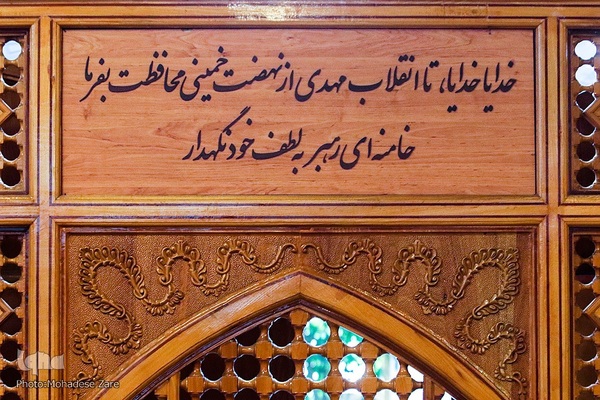 خدایا خدایا، تا انقلاب مهدی از نهضت خمینی محافظت بفرما
خامنه ای رهبر به لطف خود نگهدار
Photo:Mohadese Zare